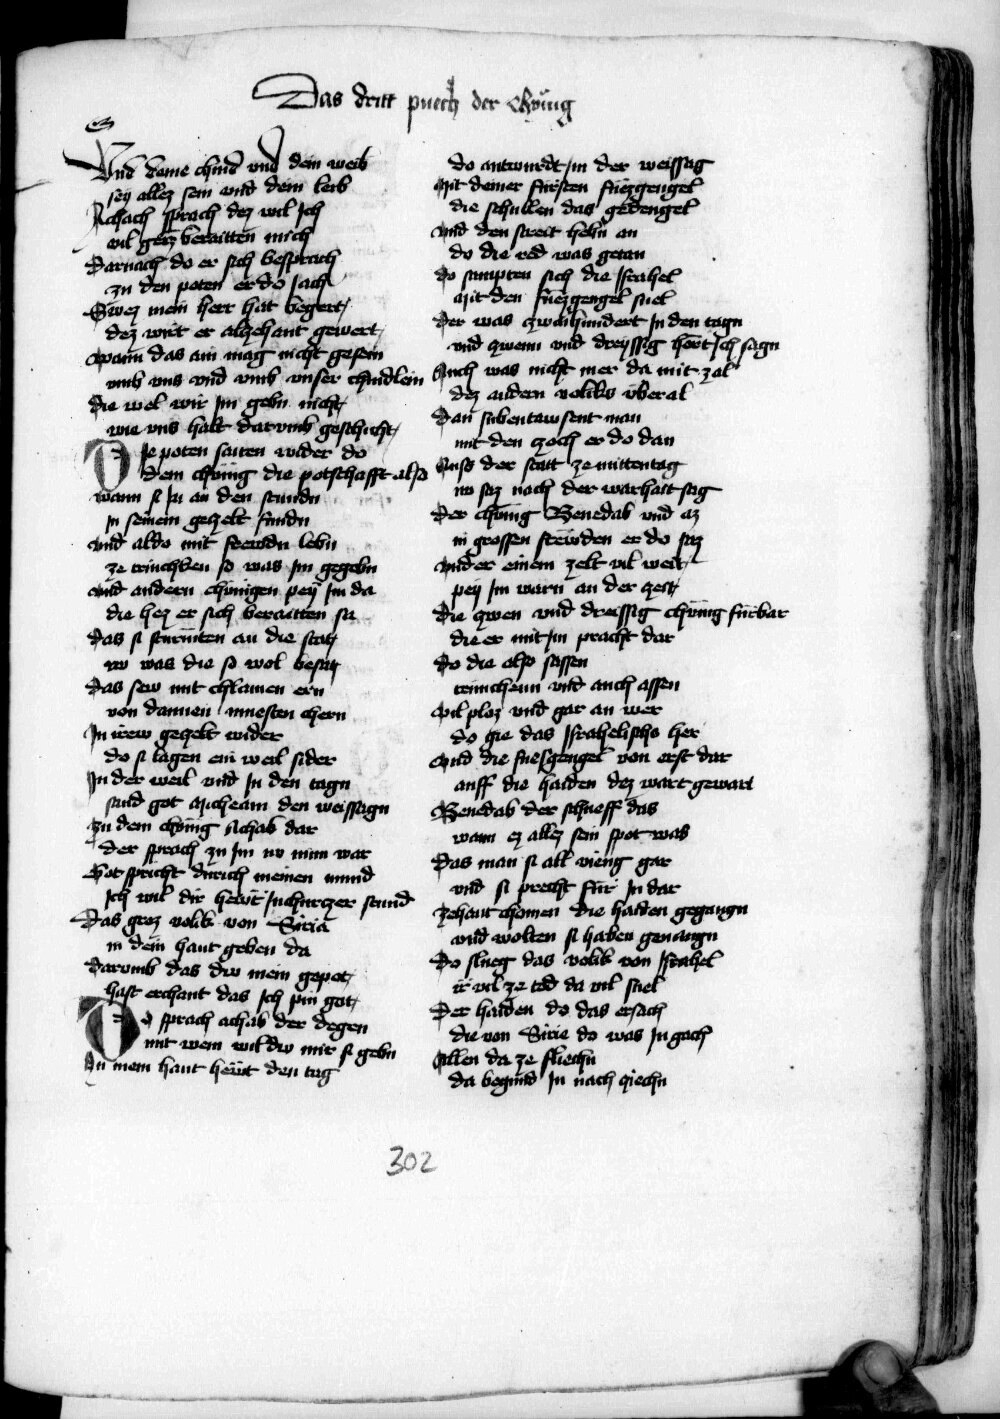 Das dritt puech der chünig
Und deine chind und dein weib
sey allez sein und dein leib
Achach sprach dez wil ich
vil gerz beraitten mich
Darnach do er sich besprach
zu den poten er do sach
Swez mein herr hat begert
dez wirt er alzehant gewert
wann das ain mag nicht gesein
umb uns und umb unser chindlein
die wel wir im gebn nicht
wie uns halt darumb geschicht
Die poten saiten wider do
dem chünig die potschafft also
wann si in an den stundn
in seinem gezelt fundn
und aldo mit frewdn lebn
ze trinchken so was im gegebn
und andern chünigen pey im da
die hez er sich beraitten sa
das si sturmten an die stat
nv was die so wol besatz
das sew mit chlainen ern
von dannen muesten chern
In irew gezelt wider
do si lagen ein weil sider
In der weil und in den tagn
sand got Micheam den weissagn
zu dem chünig Achab dar
der sprach zu im nv nim war
Got spricht durich meinen mund
ich wil dir hewt in churczer stund
Das groz volik von Siria
in dein hant geben da
darumb das dw mein gepot
hast erchant das ich pin got
Do sprach achab der degen
mit wem wil dw mir si gebn
In mein hant hewt den tag
do antwurdt im der weissag
Mit deiner fursten fuezgengel
die schullen das gedengel
und den streit hebn an
do die red was getan
do sampten sich die Israhel
mit den fuezgengel snel
der was zwaihundert in den tagn
und zwenn und dreyssig hort ich sagn
Auch was nicht mer da mit zal
dez andern voliks uberal
dan sibentawsent man
mit den zoch er do dan
Auss der statt ze mittentag
nv saz nach der warhait sag
der chünig Benedab und az
in grossen frewden er do saz
under einem zelt vil weit
pey im warn an der zeit
die zwen und dreissig chünig furbar
die er mit im pracht dar
do die also sassen
trinchenn und auch assen
vil ploz und gar an wer
do gie das Israhelischs her
und die fuesgengel von erst dar
auff die haiden dez wart gewar
Benedab der schueff das
wann ez allez sein spot was
das man si all vieng gar
und si precht fur in dar
zehant chomen die haiden gegangn
und wolten si haben gevangn
do slueg das volik von Israhel
ir vil ze tod da vil snel
der haiden do das ersach
die von Sirie do was in gach
Allen da ze fliechn
da begund in nach ziechn
302